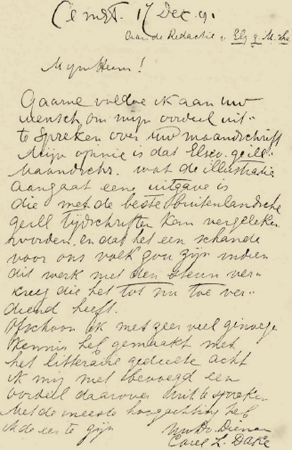 Cemst. 17 Dec. 91
Aan de Redactie v. Els. g. M.
Mijne Heeren!
Gaarne voldoe ik aan uw
wensch om mijn oordeel uit-
te spreken over uw maandschrift
Mijn opinie is dat Elsev. geïll.
Maandschr. wat de illustratie
aangaat eene uitgave is
die met de beste buitenlandsche
geïll tijdschriften kan vergeleken
worden, en dat het een schande
voor ons volk zou zijn indien
dit werk niet den steun ver-
kreeg die het tot nu toe ver-
diend heeft.
Ofschoon ik met zeer veel genoegen
kennis heb gemaakt met
het litteraire gedeelte acht
ik mij niet bevoegd een
oordeel daarover uit te spreken
Met de meeste hoogachting heb
ik de eer te zijn
Uw Dw. Dienaar
Carel L. Dake